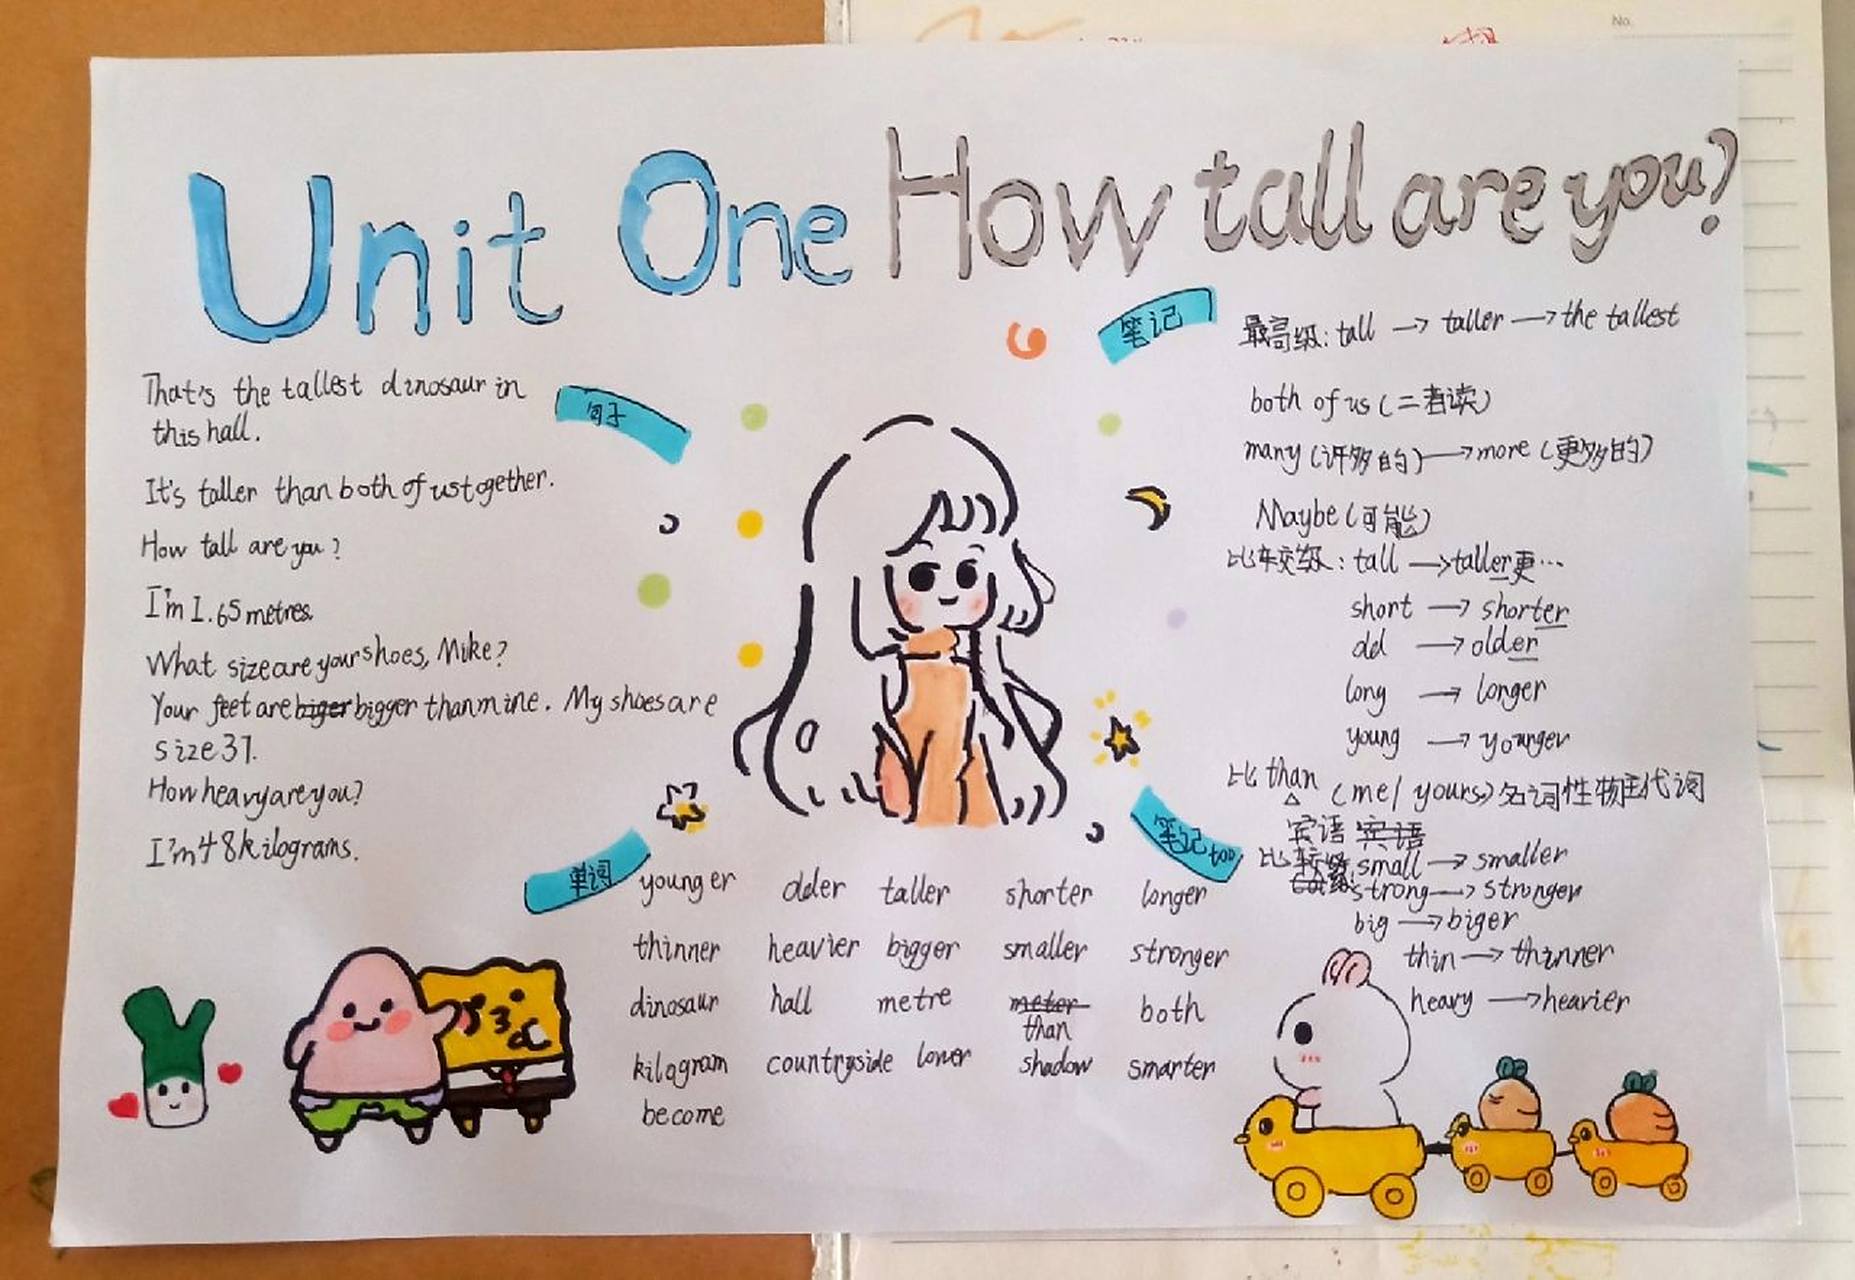 No.
Unit One How tall are you?
句子
That's the tallest dinosaur in
this hall.
It's taller than both of us together.
How tall are you?
I'm 1.65 metres.
What size are your shoes, Mike?
Your feet are biger bigger than mine. My shoes are
size 37.
How heavy are you?
I'm 48 kilograms.
笔记
最高级: tall → taller → the tallest
both of us (二者读)
many (许多的) → more (更多的)
Maybe (可能)
比较级: tall → taller 更…
short → shorter
old → older
long → longer
young → younger
比 than (me/ yours) 名词性物主代词
宾语 宾语
笔记 too
比较级 small → smaller
strong → stronger
big → biger
thin → thinner
heavy → heavier
单词
younger older taller shorter longer
thinner heavier bigger smaller stronger
dinosaur hall metre meter both
than
kilogram countryside lower shadow smarter
become